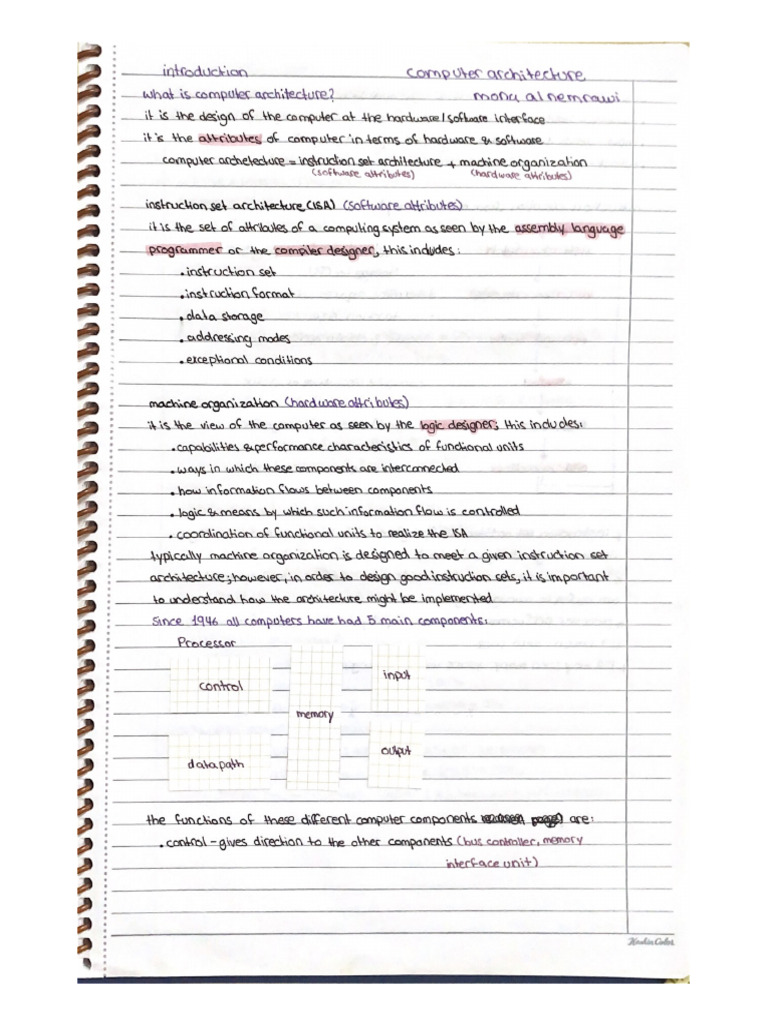 introduction computer architecture
what is computer architecture? mona al nemrawi
it is the design of the computer at the hardware/software interface
it is the attributes of computer in terms of hardware & software
computer archetecture = instruction set architecture + machine organization
(software attributes) (hardware attributes)
instruction set architecture (ISA) (software attributes)
it is the set of attributes of a computing system as seen by the assembly language
programmer or the compiler designer, this includes:
• instruction set
• instruction format
• data storage
• addressing modes
• exceptional conditions
machine organization (hardware attributes)
it is the view of the computer as seen by the logic designer; this includes:
• capabilities & performance characteristics of functional units
• ways in which these components are interconnected
• how information flows between components
• logic & means by which such information flow is controlled
• coordination of functional units to realize the ISA
typically machine organization is designed to meet a given instruction set
architecture; however, in order to design good instruction sets, it is important
to understand how the architecture might be implemented
Since 1946 all computers have had 5 main components:
Processor
control
datapath
memory
input
output
the functions of these different computer components are:
• control - gives direction to the other components (bus controller, memory
interface unit)